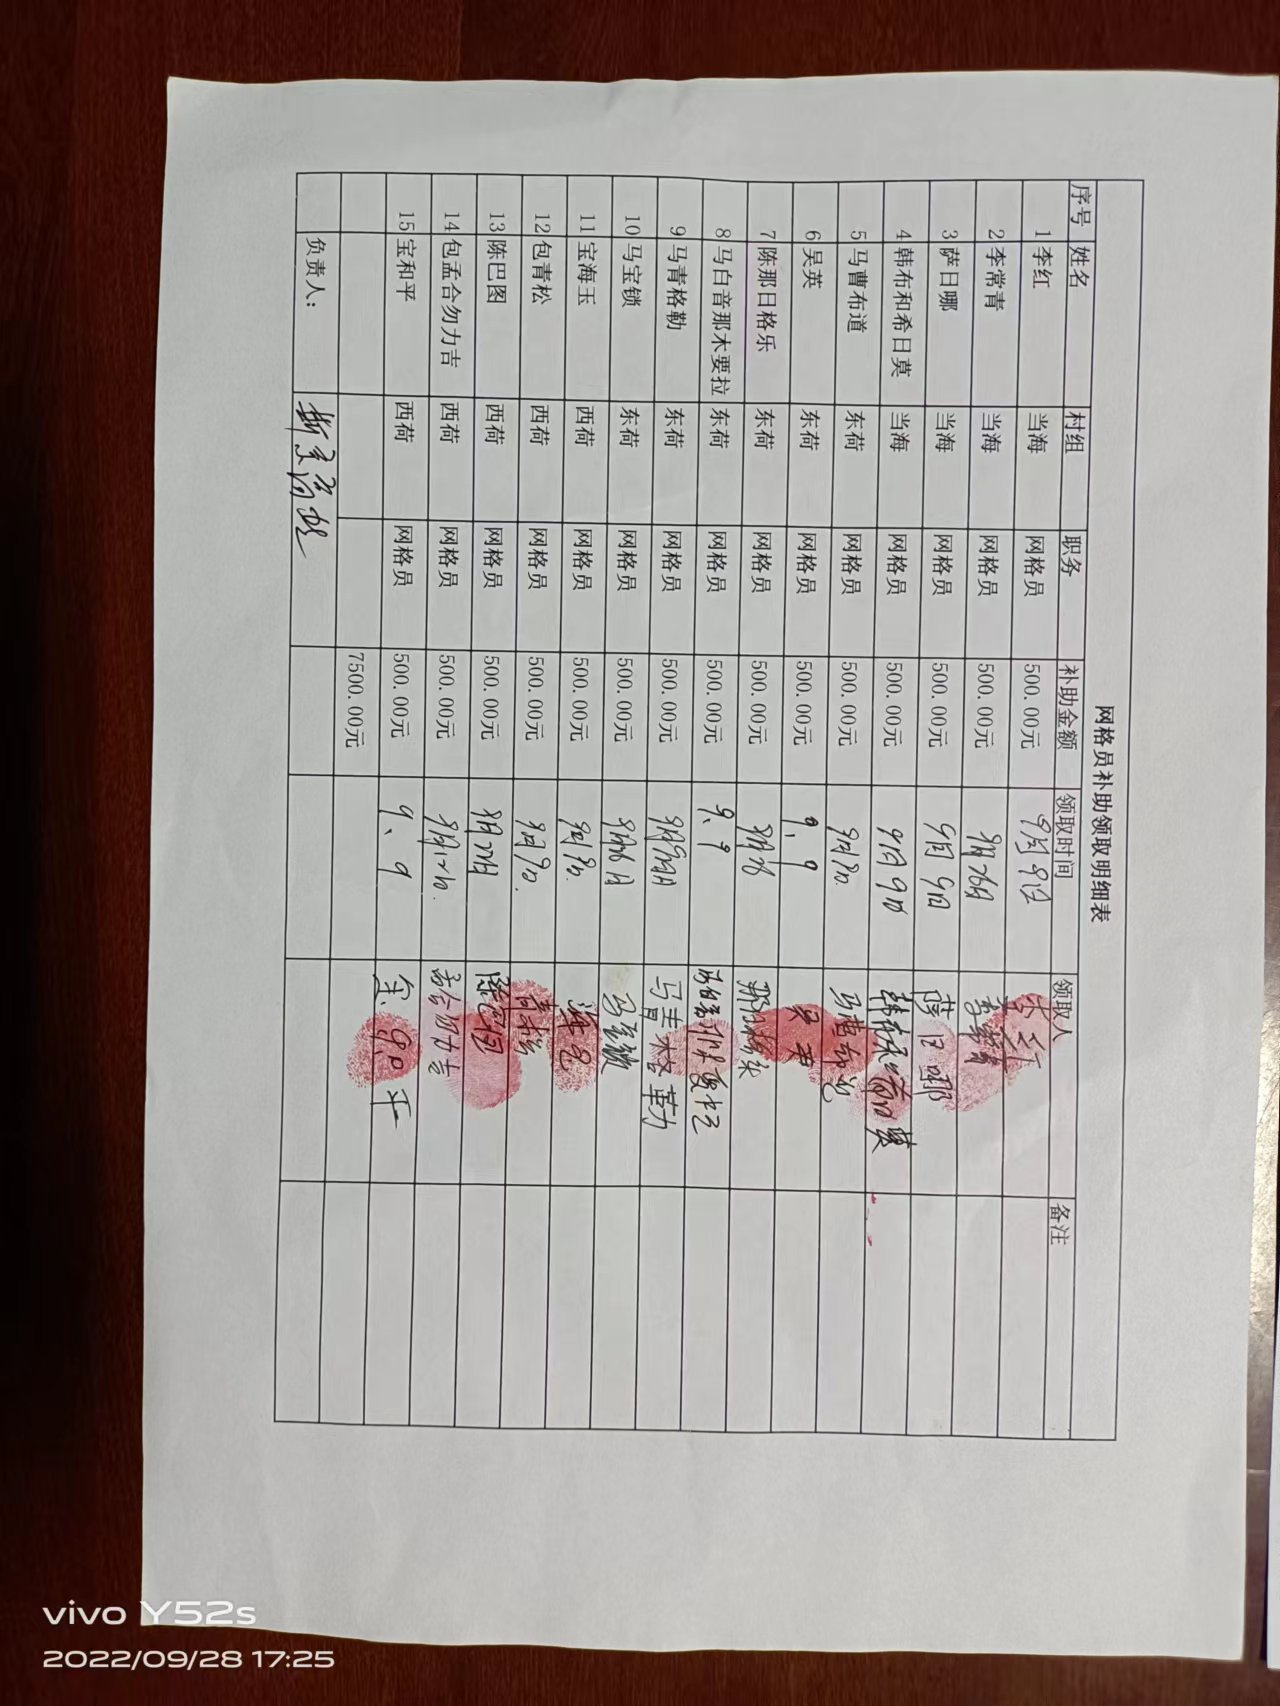 网格员补助领取明细表
序号 姓名 村组 职务 补助金额 领取时间 领取人 备注
1 李红 当海 网格员 500.00元 9月9日 李红
2 李常青 当海 网格员 500.00元 李常青
3 萨日哪 当海 网格员 500.00元 9月9日 萨日哪
4 韩布和希日莫 当海 网格员 500.00元 9月9日 韩布和希日莫
5 马曹布道 东荷 网格员 500.00元 马曹布道
6 吴英 东荷 网格员 500.00元 9、9 吴英
7 陈那日格乐 东荷 网格员 500.00元 那日格乐
8 马白音那木要拉 东荷 网格员 500.00元 9、9
9 马青格勒 东荷 网格员 500.00元 马青格勒
10 马宝锁 东荷 网格员 500.00元 马宝锁
11 宝海玉 西荷 网格员 500.00元 海玉
12 包青松 西荷 网格员 500.00元 青松
13 陈巴图 西荷 网格员 500.00元 陈巴图
14 包孟合勿力吉 西荷 网格员 500.00元 孟合勿力吉
15 宝和平 西荷 网格员 500.00元 9、9 宝和平
7500.00元
负责人:
vivo Y52s
2022/09/28 17:25